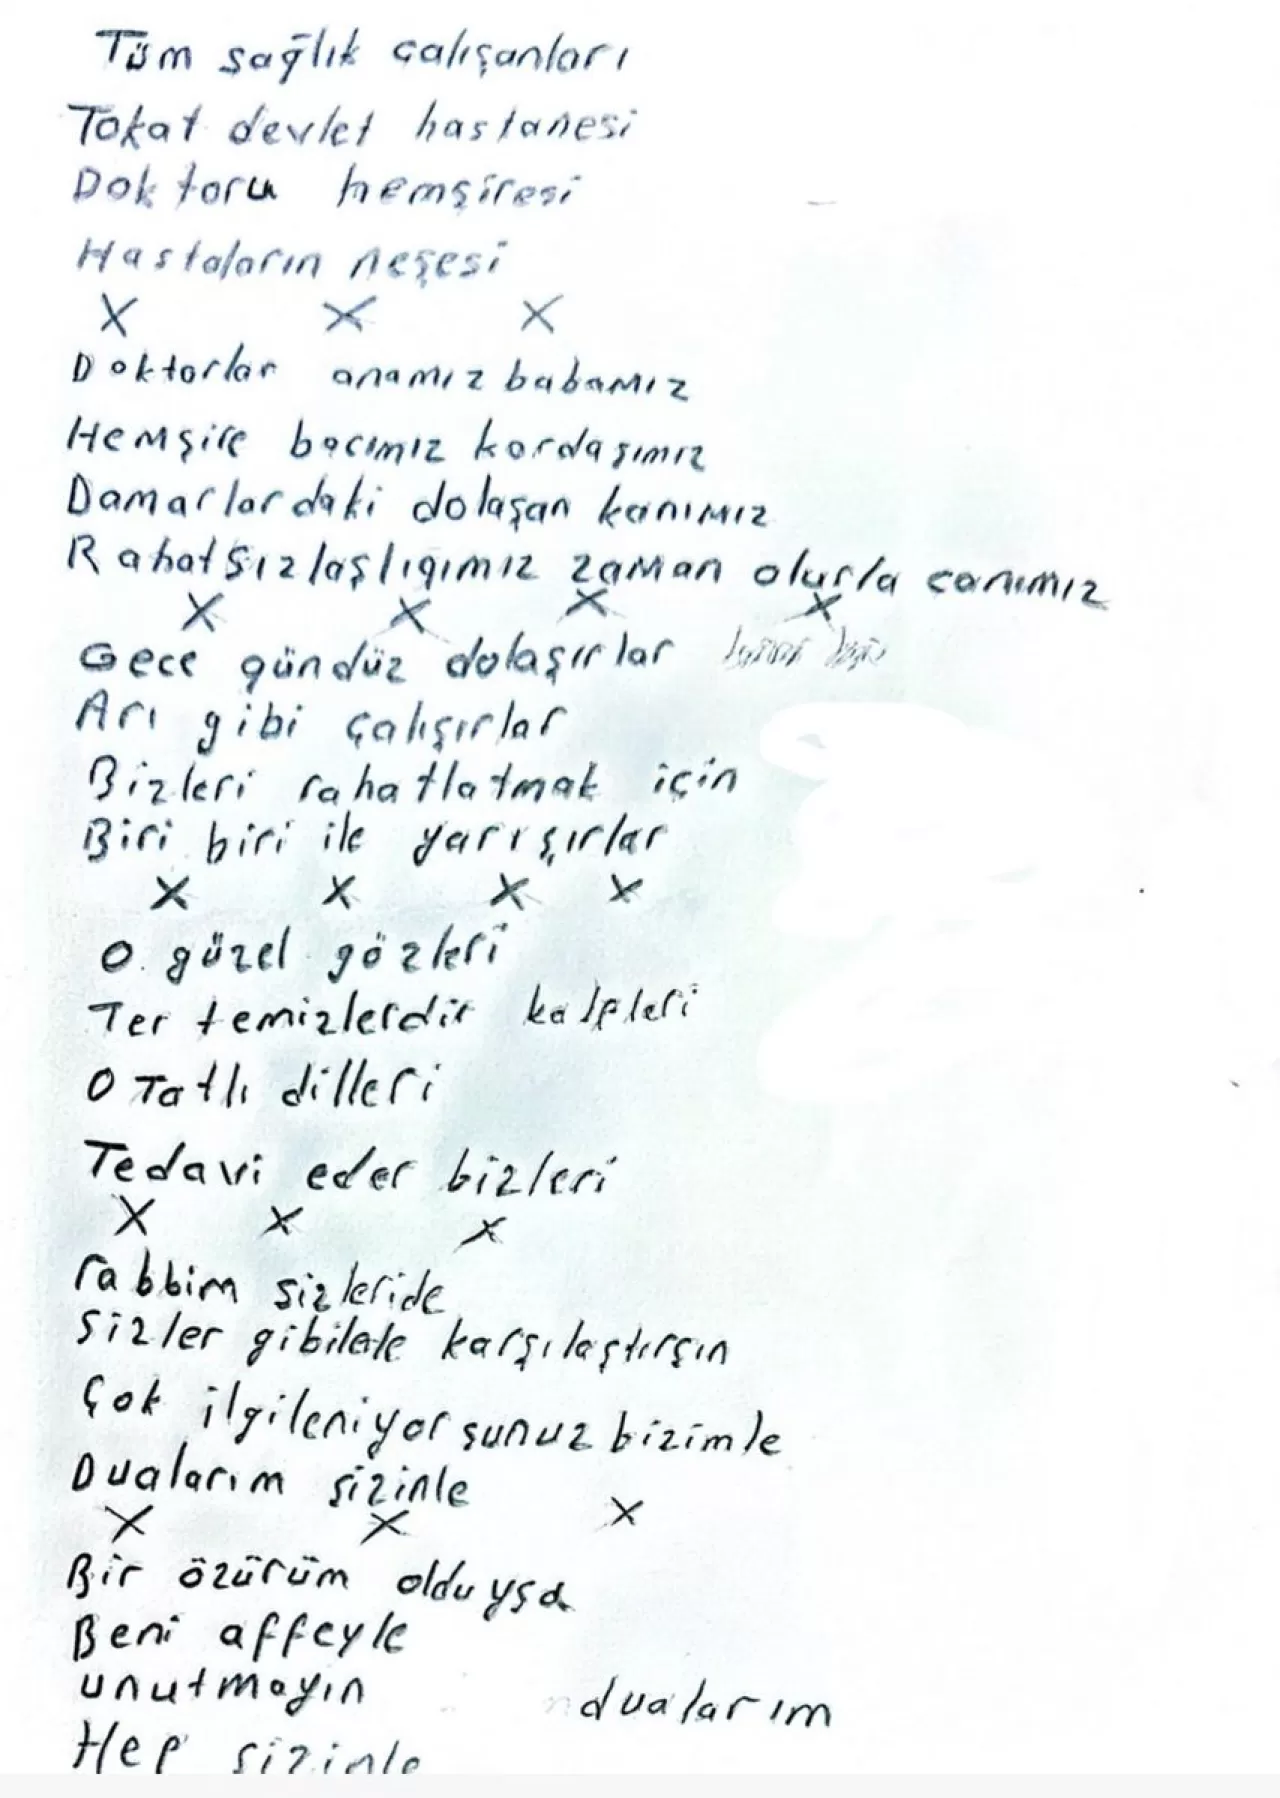 Tüm sağlık çalışanları
Tokat devlet hastanesi
Doktoru hemşiresi
Hastaların neşesi
X X X
Doktorlar anamız babamız
Hemşire bacımız kardaşımız
Damarlardaki dolaşan kanımız
Rahatsızlaşlıgımız zaman olurla canımız
X X X X
Gece gündüz dolaşırlar
Arı gibi çalışırlar
Bizleri rahatlatmak için
Biri biri ile yarışırlar
X X X X
O güzel gözleri
Ter temizlerdir kalpleri
O Tatlı dilleri
Tedavi eder bizleri
X X X
rabbim sizleride
Sizler gibilele karşılaştırsın
Çok ilgileniyorsunuz bizimle
Dualarım sizinle
X X X
Bir özürüm olduysa
Beni affeyle
unutmayın dualarım
Hep sizinle